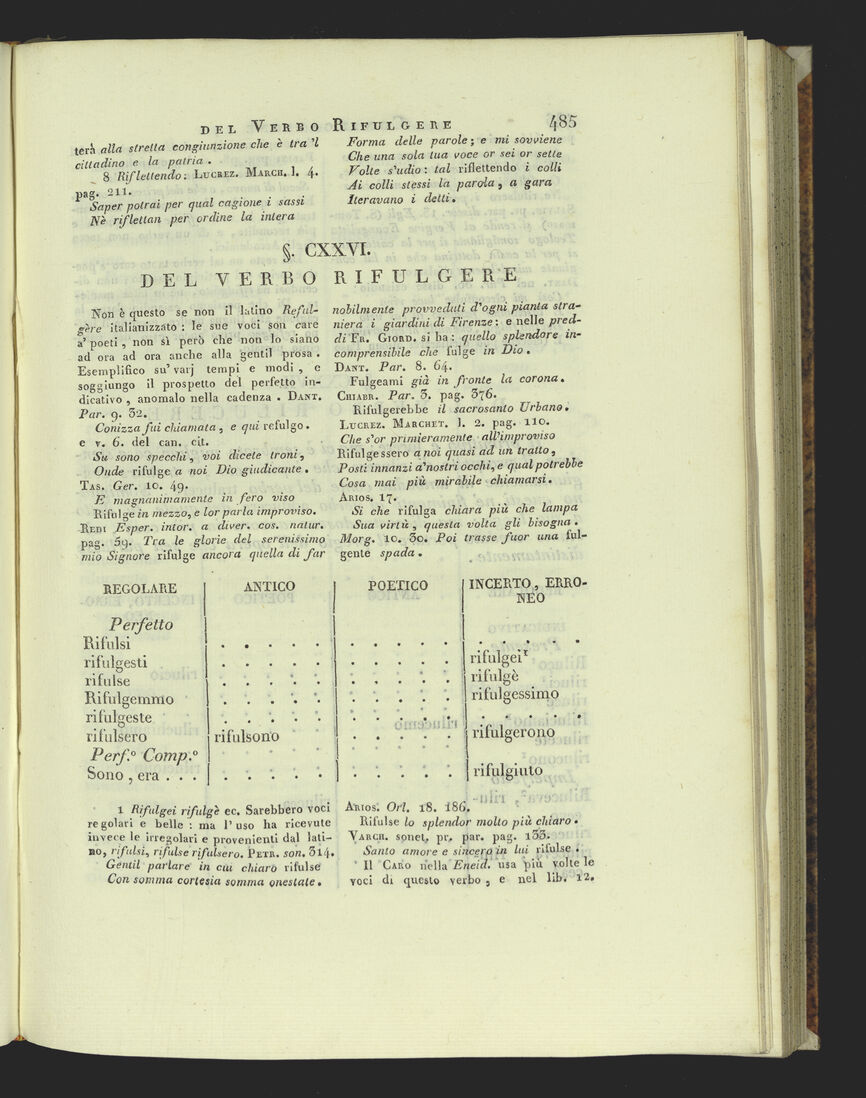 DEL VERBO RIFULGERE 485
terà alla stretta congiunzione che è tra 'l
cittadino e la patria .
8 Riflettendo: LUCREZ. MARCH. l. 4.
pag. 211.
Saper potrai per qual cagione i sassi
Nè riflettan per ordine la intera
Forma delle parole; e mi sovviene
Che una sola tua voce or sei or sette
Volte s'udio: tal riflettendo i colli
Ai colli stessi la parola, a gara
Iteravano i detti.
§. CXXVI.
DEL VERBO RIFULGERE
Non è questo se non il latino Reful-
gère italianizzato : le sue voci son care
a' poeti , non sì però che non lo siano
ad ora ad ora anche alla gentil prosa .
Esemplifico su' varj tempi e modi , e
soggiungo il prospetto del perfetto in-
dicativo , anomalo nella cadenza . DANT.
Par. 9. 32.
Cunizza fui chiamata, e qui refulgo.
e v. 6. del can. cit.
Su sono specchi, voi dicete troni,
Onde rifulge a noi Dio giudicante.
TAS. Ger. 10. 49.
E magnanimamente in fero viso
Rifulge in mezzo, e lor parla improviso.
REDI Esper. intor. a diver. cos. natur.
pag. 59. Tra le glorie del serenissimo
mio Signore rifulge ancora quella di far
nobilmente provveduti d'ogni pianta stra-
niera i giardini di Firenze; e nelle pred-
di FR. GIORD. si ha: quello splendore in-
comprensibile che fulge in Dio.
DANT. Par. 8. 64.
Fulgeami già in fronte la corona.
CHIABR. Par. 3. pag. 376.
Rifulgerebbe il sacrosanto Urbano.
LUCREZ. MARCHET. l. 2. pag. 110.
Che s'or primieramente all'improviso
Rifulgessero a noi quasi ad un tratto,
Posti innanzi a'nostri occhi, e qual potrebbe
Cosa mai più mirabile chiamarsi.
ARIOS. 17.
Si che rifulga chiara più che lampa
Sua virtù, questa volta gli bisogna.
Morg. 10. 30. Poi trasse fuor una ful-
gente spada.
REGOLARE ANTICO POETICO INCERTO, ERRO-
NEO
Perfetto
Rifulsi . . . . . . . . . . . . . . . .
rifulgesti . . . . . . . . . . rifulgei¹
rifulse . . . . . . . . . . rifulgè
Rifulgemmo . . . . . . . . . . rifulgessimo
rifulgeste . . . . . . . . . . . . . . .
rifulsero rifulsono . . . . . rifulgerono
Perf.º Comp.º
Sono, era . . . . . . . . . . . . . rifulgiuto
1 Rifulgei rifulgè ec. Sarebbero voci
regolari e belle : ma l' uso ha ricevute
invece le irregolari e provenienti dal lati-
no, rifulsi, rifulse rifulsero. PETR. son. 314.
Gentil parlare in cui chiaro rifulse
Con somma cortesia somma onestate.
ARIOS. Orl. 18. 186.
Rifulse lo splendor molto più chiaro.
VARCH. sonet. pr. par. pag. 133.
Santo amore e sincero in lui rifulse.
Il CARO nella Eneid. usa più volte le
voci di questo verbo, e nel lib. 12.